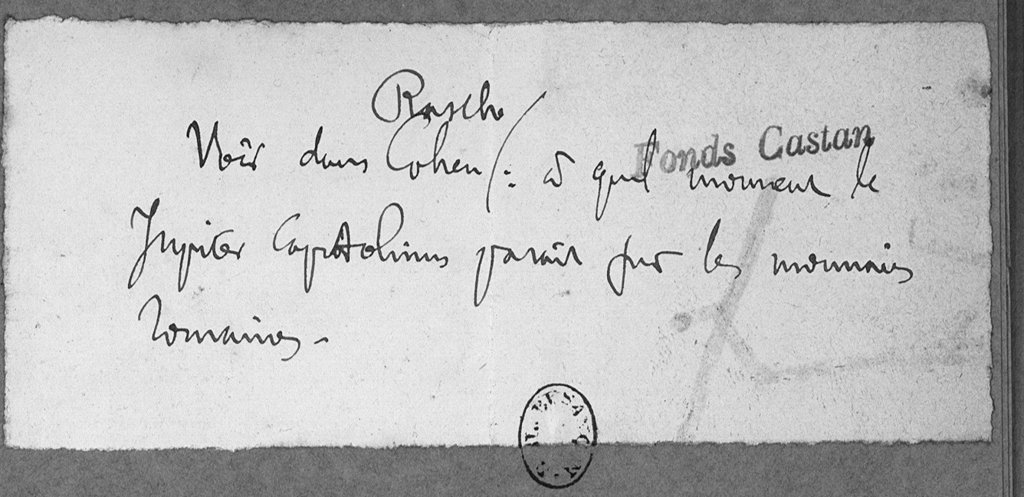 Rasche
Fonds Castan
Voir dans Cohen /: à quel moment le
Jupiter Capitolinus parait sur les monnaies
romaines.